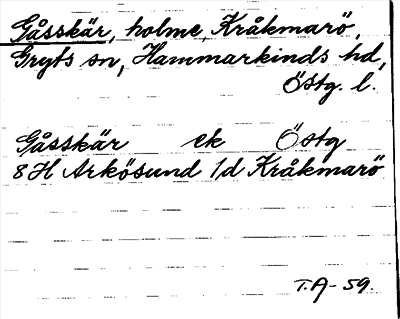 Gåsskär, holme, Kråkmarö,
Gryts sn, Hammarkinds hd,
Östg. l.
Gåsskär ek Östg
8H Arkösund 1d Kråkmarö
T.A-59.